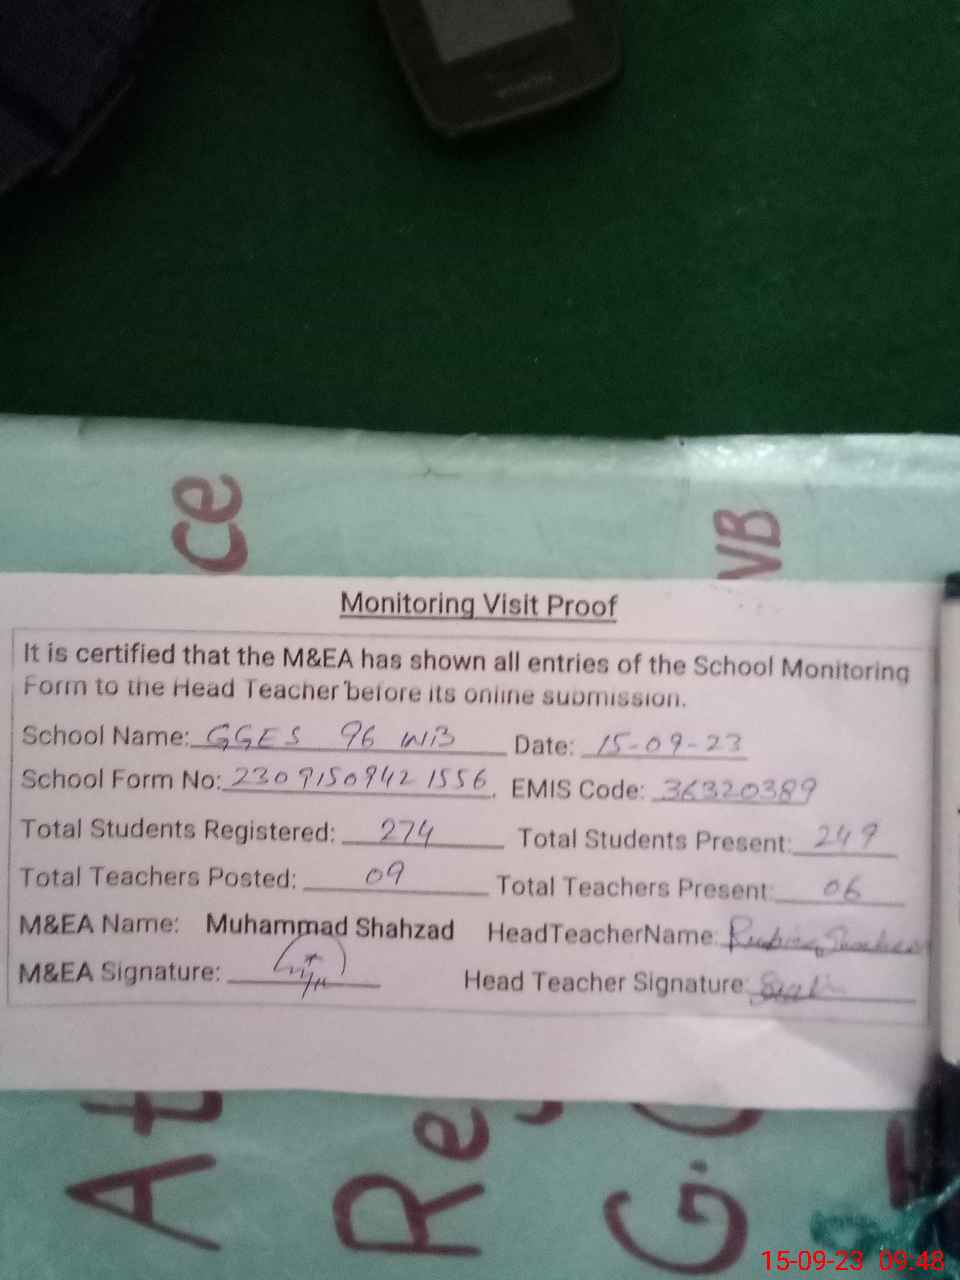 ce
WB
Monitoring Visit Proof
It is certified that the M&EA has shown all entries of the School Monitoring
Form to the Head Teacher before its online submission.
School Name: GGES 96 WB Date: 15-09-23
School Form No: 2309150942 1556. EMIS Code: 36320389
Total Students Registered: 274 Total Students Present: 249
Total Teachers Posted: 09 Total Teachers Present: 06
M&EA Name: Muhammad Shahzad HeadTeacherName:
M&EA Signature: Head Teacher Signature:
At
Re
G.G
15-09-23 09:48